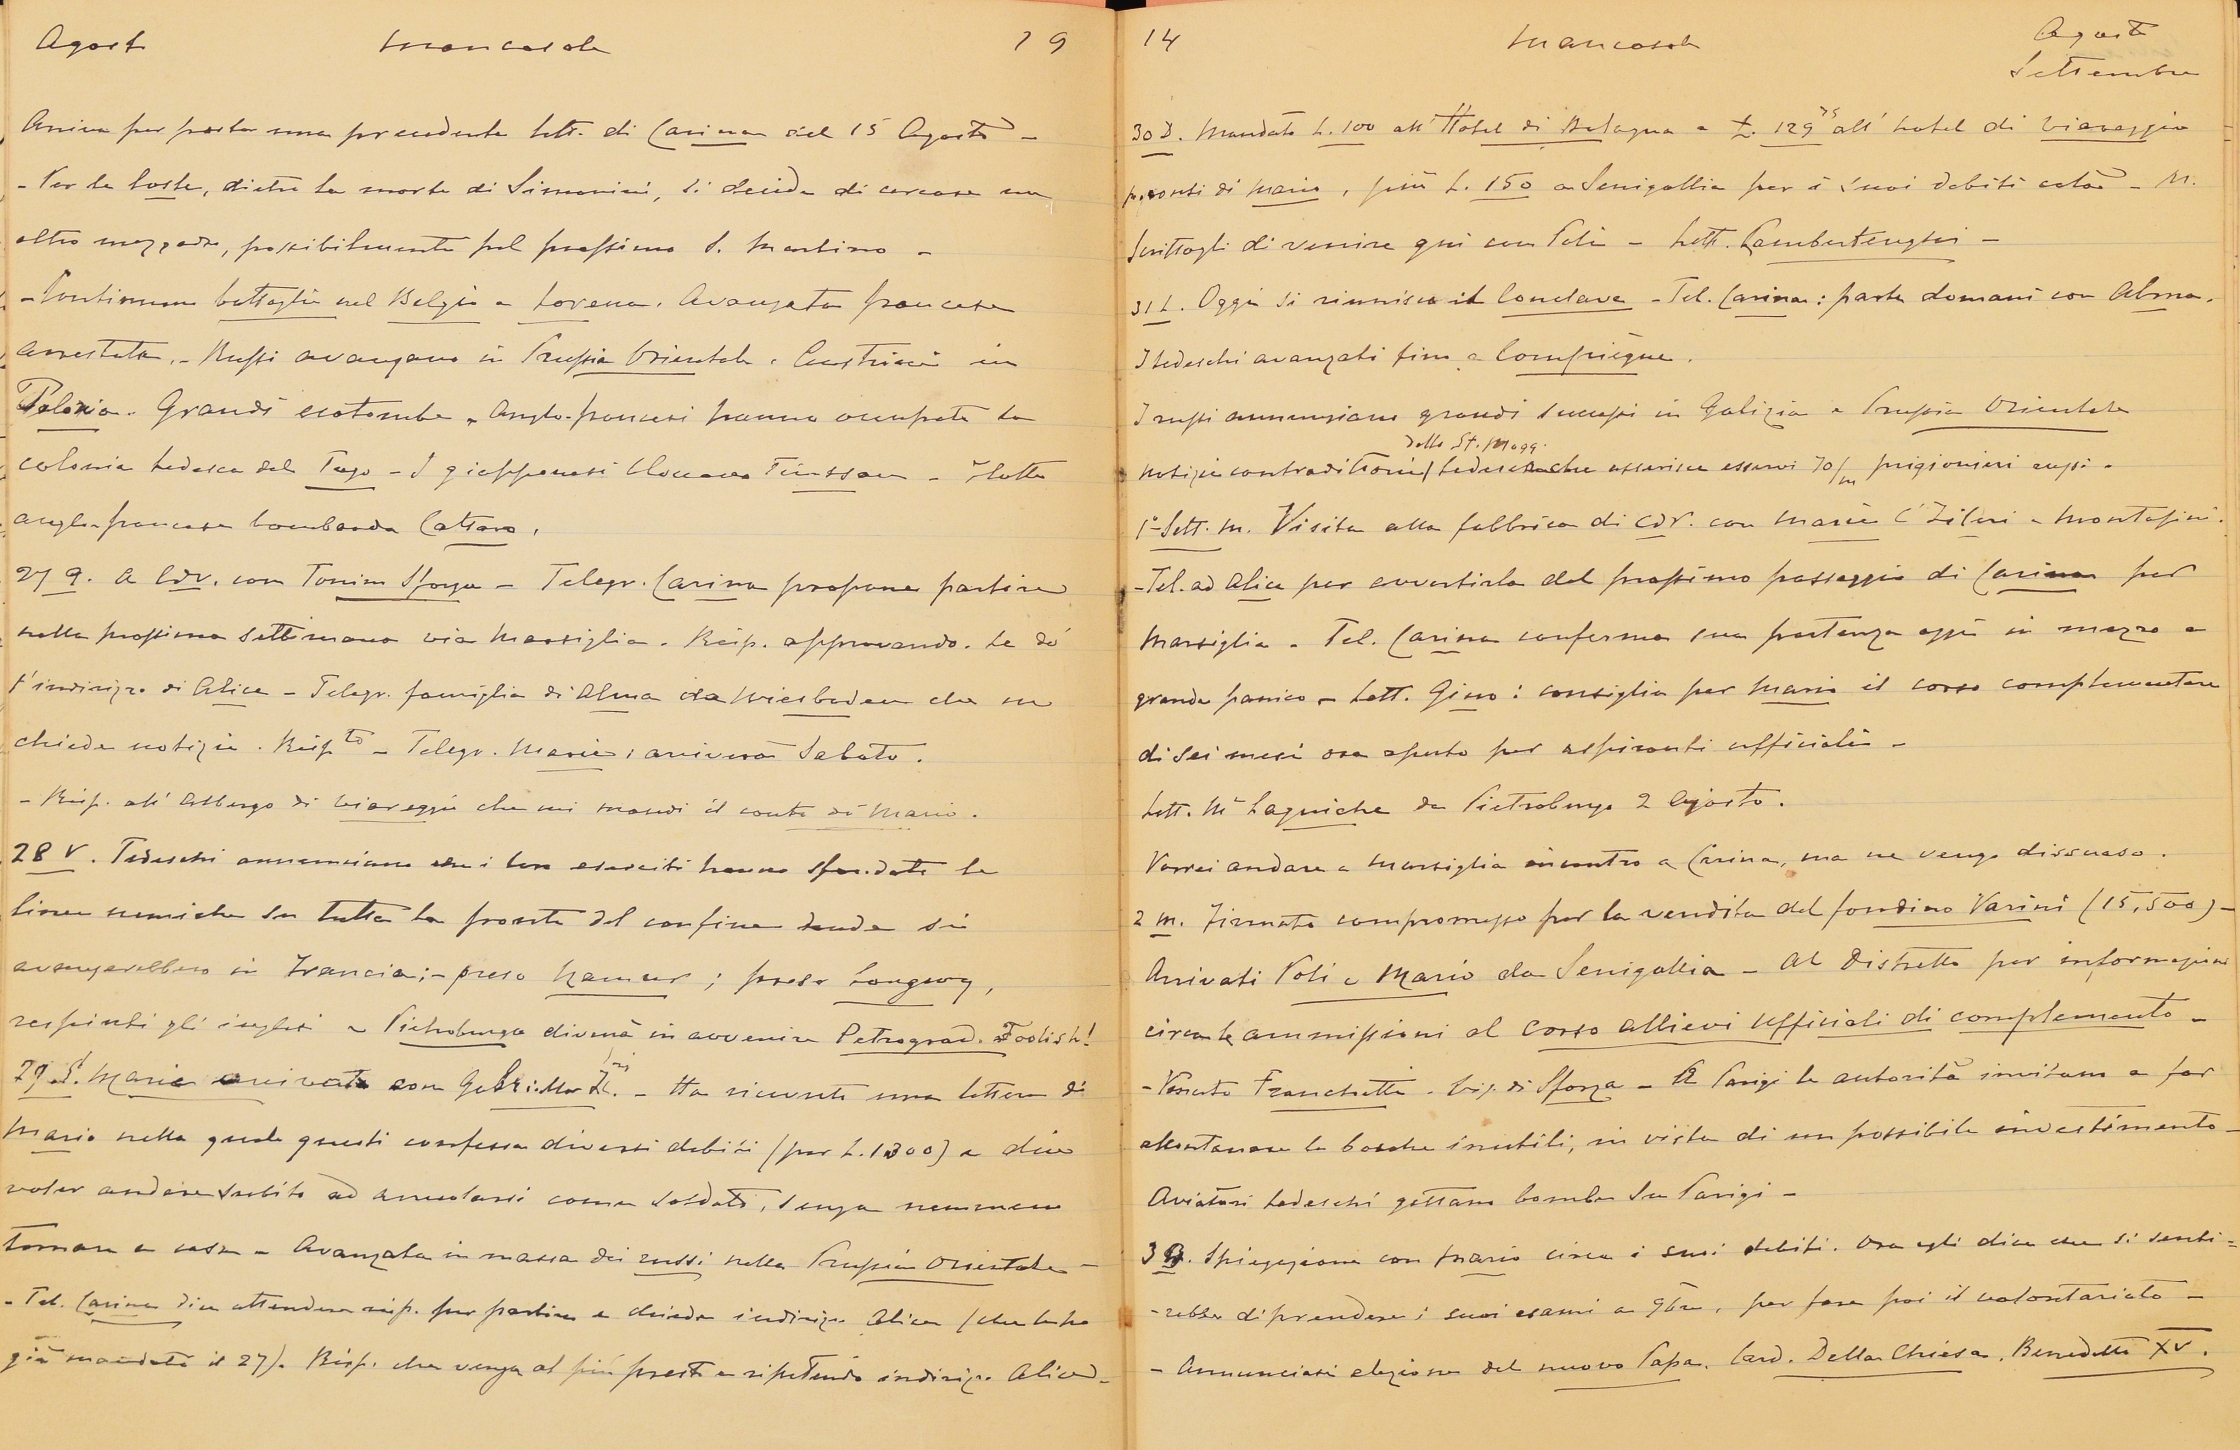 Agosto Mancasale 19
Arriva per posta una precedente lett. di Carina del 15 Agosto -
- Per le Coste, dietro la morte di Simonini, si decide di cercare un
altro mezzadro, possibilmente pel prossimo S. Martino -
- Continuano battaglie nel Belgio e Lorena. Avanzata francese
arrestata. - Russi avanzano in Prussia Orientale. Austriaci in
Polonia. Grandi ecatombe - Anglo-francesi hanno occupato la
colonia tedesca del Togo - I giapponesi bloccano Tsinssau - Flotta
anglo-francese bombarda Cattaro.
27 G. A Cdv. con Tonino Sforza - Telegr. Carina propone partire
nella prossima settimana via Marsiglia. Risp. approvando. Le dò
l'indirizzo di Alice - Telegr. famiglia di Alma da Wiesbaden che ne
chiede notizie. Rispto - Telegr. Maria: arriverà Sabato.
- Risp. all'Albergo di Viareggio che mi mandi il conto di Mario.
28 V. Tedeschi annunciano che i loro eserciti hanno sfondate le
linee nemiche su tutta la fronte del confine si
avanzerebbero in Francia; - preso Namur; preso Longwy,
respinti gli inglesi - Pietroburgo diverrà in avvenire Petrograd. Foolish!
29 S. Maria arrivata con Gabriella - Ha ricevuto una lettera di
Mario nella quale questi confessa diversi debiti (per L. 1300) e dice
voler andare subito ad arruolarsi come soldato, senza nemmeno
tornare a casa - Avanzata in massa dei russi nella Prussia Orientale -
- Tel. Carina dice attendere risp. per partire e chiede indirizzo Alice (che le ho
già mandato il 27). Risp. che venga al più presto e ripetendo indirizzo Alice -
14 Mancasale Agosto
Settembre
30 D. Mandato L. 100 all'Hotel di Bologna e L. 129 75 all'hotel di Viareggio
p. conti di Mario, più L. 150 a Senigallia per i suoi debiti colà - M.
Scrittogli di venire qui con Poli - Lett. Lambertenghi -
31 L. Oggi si riunisce il Conclave - Tel. Carina: parte domani con Alma.
I tedeschi avanzati fino a Compiègne.
I russi annunziano grandi successi in Galizia e Prussia Orientale
dello St. Magg.
notizie contraditorie tedesco che asserisce esservi 70/m prigionieri russi -
1° Sett. M. Visita alla fabbrica di Cdv. con Maria Cª Zileri e Montasini.
- Tel. ad Alice per avvertirla del prossimo passaggio di Carina per
Marsiglia - Tel. Carina conferma sua partenza oggi in mezzo a
grande panico - Lett. Gino: consiglia per Mario il corso complementare
di sei mesi ora aperto per aspiranti ufficiali -
Lett. Mª Laguiche da Pietroburgo 2 Agosto.
Vorrei andare a Marsiglia incontro a Carina, ma ne vengo dissuaso.
2 M. Firmato compromesso per la vendita del fondino Varini (15,500) -
Arrivati Poli e Mario da Senigallia - Al Distretto per informazioni
circa le ammissioni al Corso Allievi Ufficiali di complemento -
- Venuto Franchetti. Vis. di Sforza - A Parigi le autorità invitano a far
allontanare le bocche inutili, in vista di un possibile investimento -
Aviatori tedeschi gettano bombe su Parigi -
3 G. Spiegazione con Mario circa i suoi debiti. Ora egli dice che si senti-
-rebbe di prendere i suoi esami a 9bre, per fare poi il volontariato -
- Annunciasi elezione del nuovo Papa. Card. Della Chiesa. Benedetto XV.